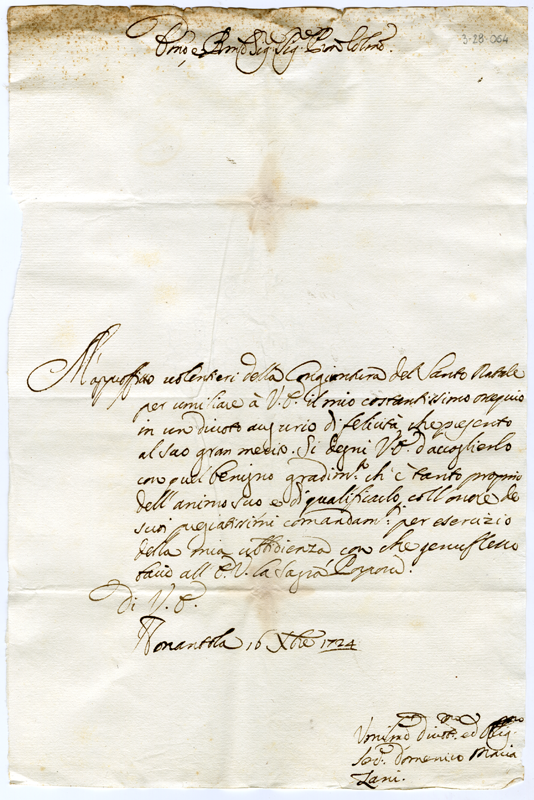 Emo, e Rmo Sig.r Sig.r Pron Colmo.
3-28-064
M'approfitto volentieri della Congiuntura del Santo Natale
per umiliare à V.E. il mio costantissimo ossequio
in un divoto augurio di felicità, che presento
al suo gran merito. Si degni V.E. d'accoglierlo
con quel benigno gradim.to ch'è tanto proprio
dell'animo suo e di qualificarlo coll'onore de
suoi pregiatissimi comandam.ti per esercizio
della mia ubbidienza con che genuflesso
bacio all'E.V. la Sagra Porpora.
Di V.E.
Nonantola 16 Xbre 1724
Umilmo Divotmo ed Obligmo
Serv. Domenico Maria
Zani.